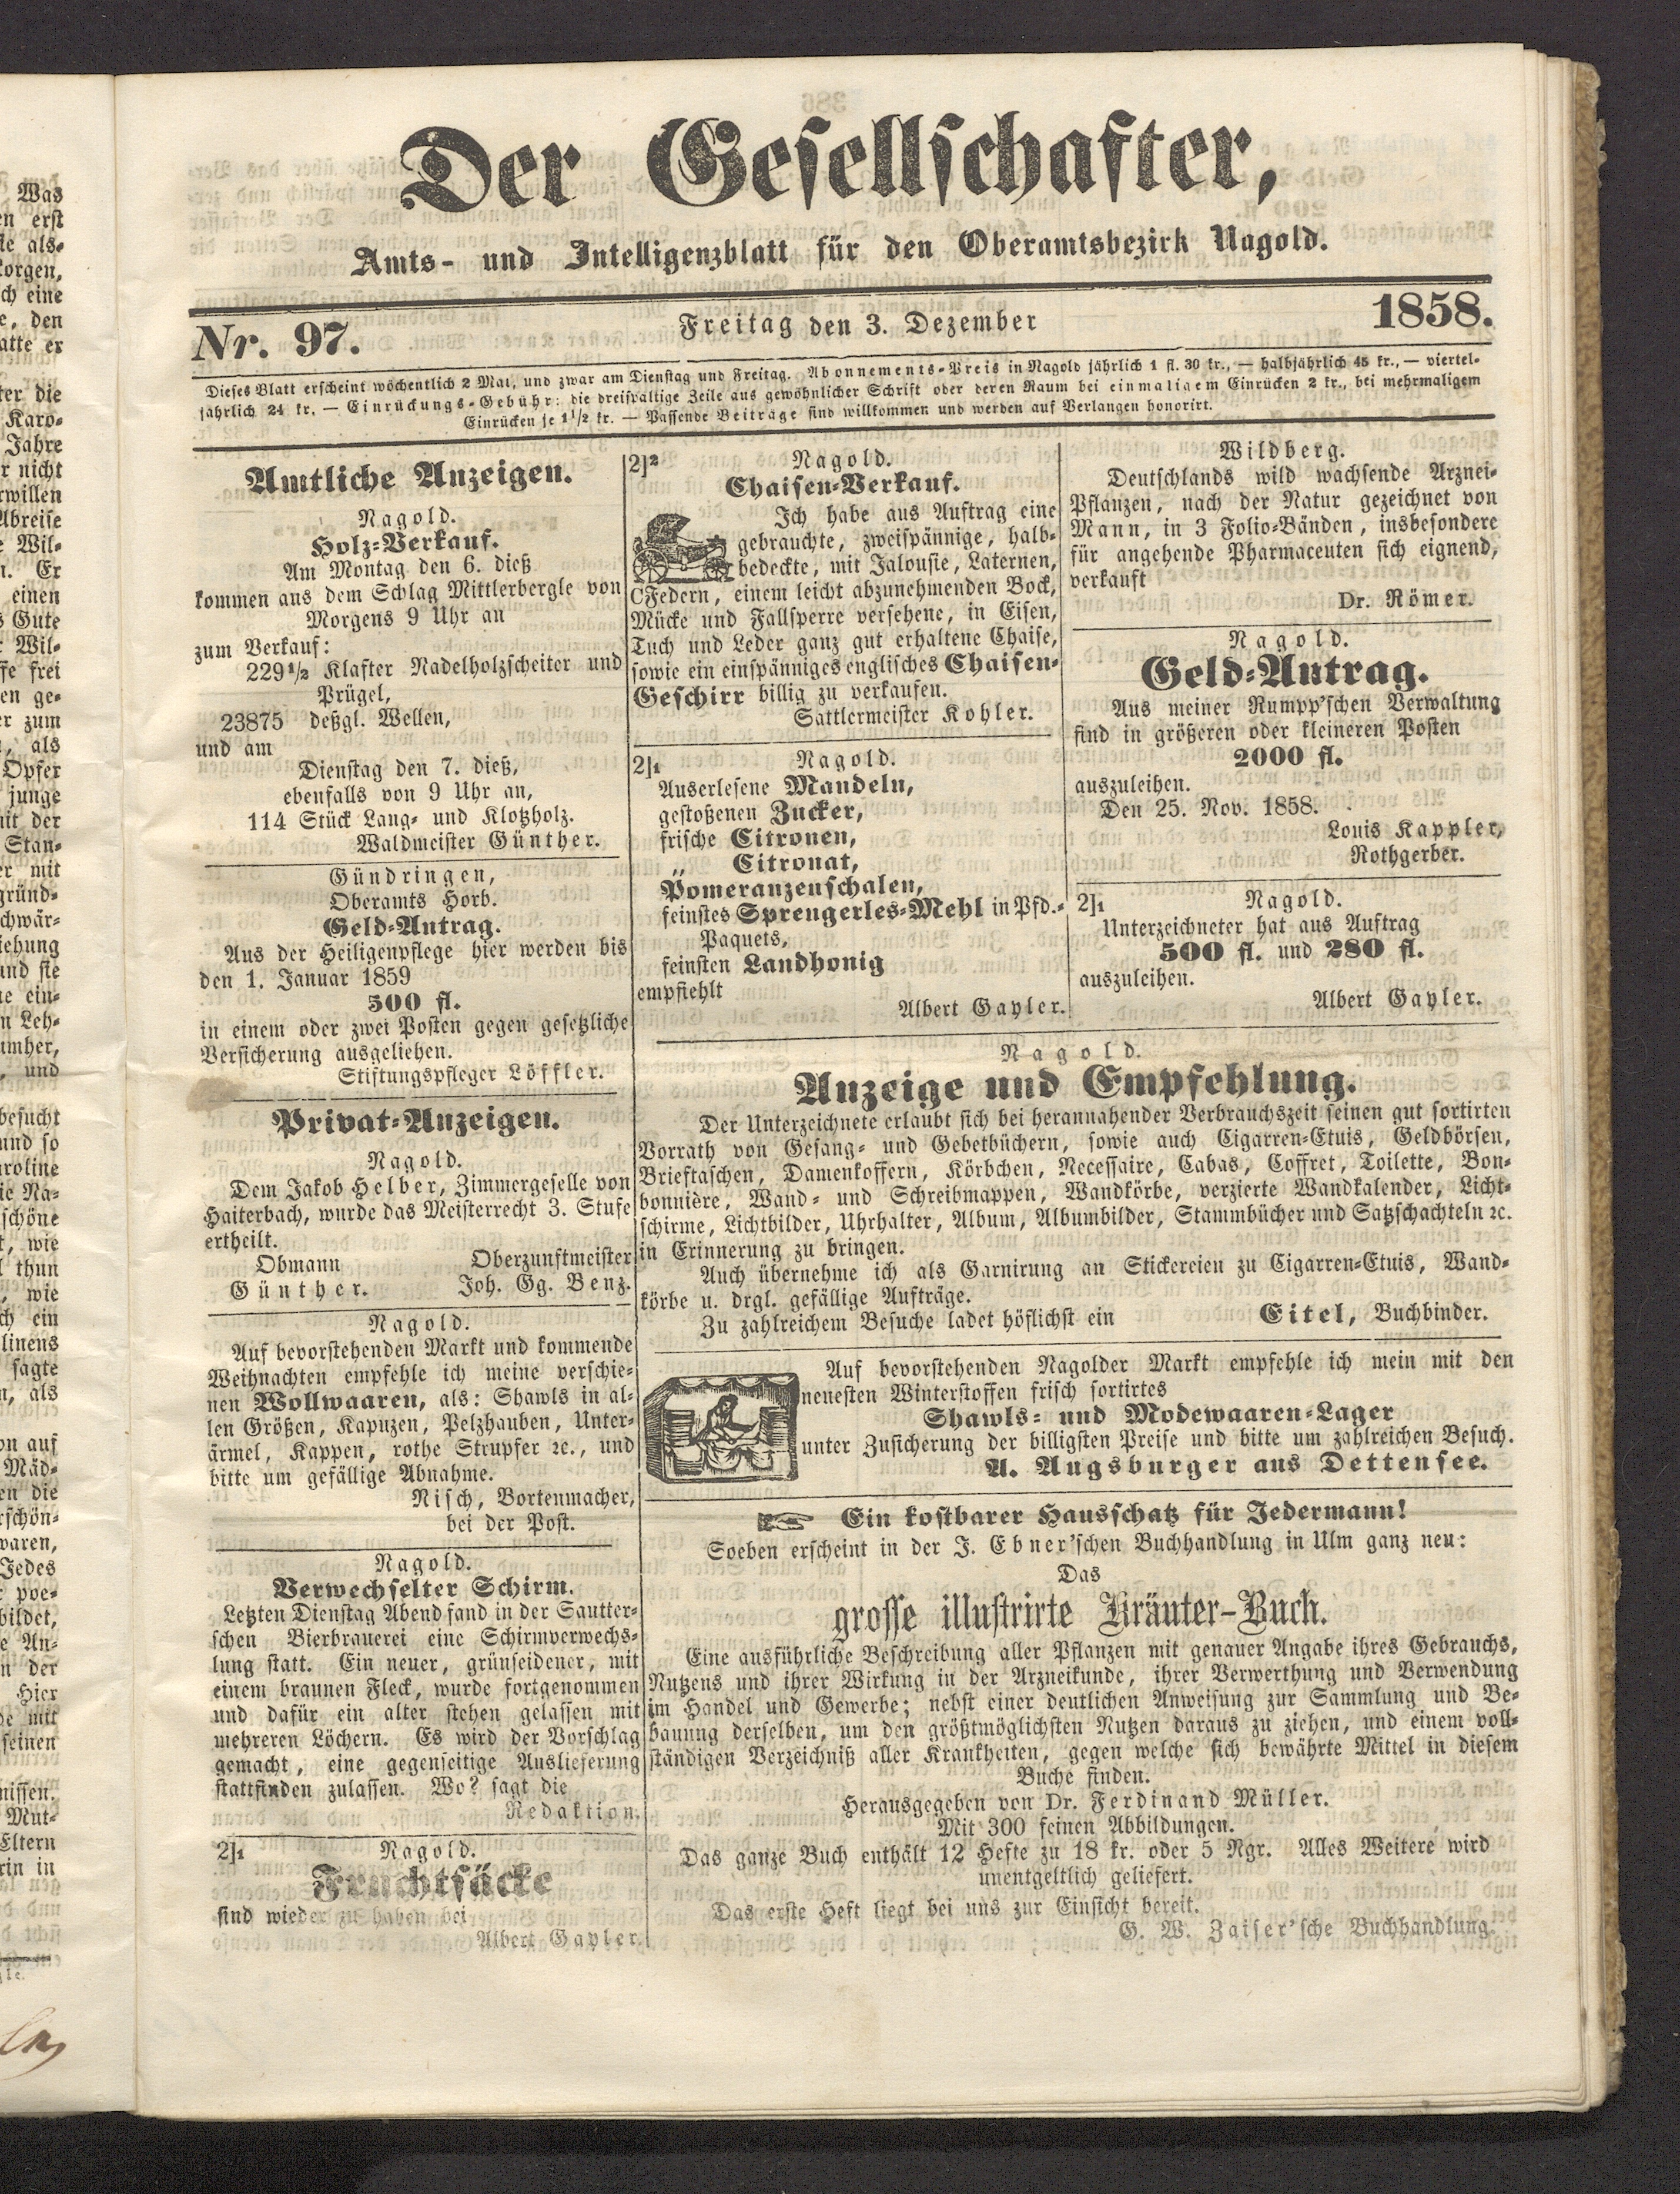 Der Gesellschafter,
Amts- und Intelligenzblatt für den Oberamtsbezirk Nagold.
Nr. 97.
Freitag den 3. Dezember
1858.
Dieses Blatt erscheint wöchentlich 2 Mal, und zwar am Dienstag und Freitag. Abonnements-Preis in Nagold jährlich 1 fl. 30 kr., — halbjährlich 45 kr., — viertel-
jährlich 24 kr. — Einrückungs-Gebühr: die dreispaltige Zeile aus gewöhnlicher Schrift oder deren Raum bei einmaligem Einrücken 2 kr., bei mehrmaligem
Einrücken je 1 1/2 kr. — Passende Beiträge sind willkommen und werden auf Verlangen honorirt.
Amtliche Anzeigen.
Nagold.
Holz-Verkauf.
Am Montag den 6. dieß
kommen aus dem Schlag Mittlerbergle von
Morgens 9 Uhr an
zum Verkauf:
229 1/2 Klafter Nadelholzscheiter und
Prügel,
23875 deßgl. Wellen,
und am
Dienstag den 7. dieß,
ebenfalls von 9 Uhr an,
114 Stück Lang- und Klotzholz.
Waldmeister Günther.
Gündringen,
Oberamts Horb.
Geld-Antrag.
Aus der Heiligenpflege hier werden bis
den 1. Januar 1859
500 fl.
in einem oder zwei Posten gegen gesetzliche
Versicherung ausgeliehen.
Stiftungspfleger Löffler.
Privat-Anzeigen.
Nagold.
Dem Jakob Helber, Zimmergeselle von
Haiterbach, wurde das Meisterrecht 3. Stufe
ertheilt.
Obmann Oberzunftmeister
Günther. Joh. Gg. Benz.
Nagold.
Auf bevorstehenden Markt und kommende
Weihnachten empfehle ich meine verschie-
nen Wollwaaren, als: Shawls in al-
len Größen, Kapuzen, Pelzhauben, Unter-
ärmel, Kappen, rothe Strupfer ꝛc., und
bitte um gefällige Abnahme.
Nisch, Bortenmacher,
bei der Post.
Nagold.
Verwechselter Schirm.
Letzten Dienstag Abend fand in der Sautter-
schen Bierbrauerei eine Schirmverwechs-
lung statt. Ein neuer, grünseidener, mit
einem braunen Fleck, wurde fortgenommen
und dafür ein alter stehen gelassen mit
mehreren Löchern. Es wird der Vorschlag
gemacht, eine gegenseitige Auslieferung
stattfinden zulassen. Wo? sagt die
Redaktion.
2]1 Nagold.
Fruchtsäcke
sind wieder zu haben bei
Albert Gayler.
2]2 Nagold.
Chaisen-Verkauf.
Ich habe aus Auftrag eine
gebrauchte, zweispännige, halb-
bedeckte, mit Jalousie, Laternen,
CFedern, einem leicht abzunehmenden Bock,
Mücke und Fallsperre versehene, in Eisen,
Tuch und Leder ganz gut erhaltene Chaise,
sowie ein einspänniges englisches Chaisen-
Geschirr billig zu verkaufen.
Sattlermeister Kohler.
2]1 Nagold.
Auserlesene Mandeln,
gestoßenen Zucker,
frische Citronen,
„ Citronat,
Pomeranzenschalen,
feinstes Sprengerles-Mehl in Pfd.-
Paquets,
feinsten Landhonig
empfiehlt
Albert Gayler.
Wildberg.
Deutschlands wild wachsende Arznei-
Pflanzen, nach der Natur gezeichnet von
Mann, in 3 Folio-Bänden, insbesondere
für angehende Pharmaceuten sich eignend,
verkauft
Dr. Römer.
Nagold.
Geld-Antrag.
Aus meiner Rumpp'schen Verwaltung
sind in größeren oder kleineren Posten
2000 fl.
auszuleihen.
Den 25. Nov. 1858.
Louis Kappler,
Rothgerber.
2]1 Nagold.
Unterzeichneter hat aus Auftrag
500 fl. und 280 fl.
auszuleihen.
Albert Gayler.
Nagold.
Anzeige und Empfehlung.
Der Unterzeichnete erlaubt sich bei herannahender Verbrauchszeit seinen gut sortirten
Vorrath von Gesang- und Gebetbüchern, sowie auch Cigarren-Etuis, Geldbörsen,
Brieftaschen, Damenkoffern, Körbchen, Necessaire, Cabas, Coffret, Toilette, Bon-
bonnière, Wand- und Schreibmappen, Wandkörbe, verzierte Wandkalender, Licht-
schirme, Lichtbilder, Uhrhalter, Album, Albumbilder, Stammbücher und Satzschachteln ꝛc.
in Erinnerung zu bringen.
Auch übernehme ich als Garnirung an Stickereien zu Cigarren-Etuis, Wand-
körbe u. drgl. gefällige Aufträge.
Zu zahlreichem Besuche ladet höflichst ein Eitel, Buchbinder.
Auf bevorstehenden Nagolder Markt empfehle ich mein mit den
neuesten Winterstoffen frisch sortirtes
Shawls- und Modewaaren-Lager
unter Zusicherung der billigsten Preise und bitte um zahlreichen Besuch.
A. Augsburger aus Dettensee.
☞ Ein kostbarer Hausschatz für Jedermann!
Soeben erscheint in der J. Ebner'schen Buchhandlung in Ulm ganz neu:
Das
grosse illustrirte Kräuter-Buch.
Eine ausführliche Beschreibung aller Pflanzen mit genauer Angabe ihres Gebrauchs,
Nutzens und ihrer Wirkung in der Arzneikunde, ihrer Verwerthung und Verwendung
im Handel und Gewerbe; nebst einer deutlichen Anweisung zur Sammlung und Be-
bauung derselben, um den größtmöglichsten Nutzen daraus zu ziehen, und einem voll-
ständigen Verzeichniß aller Krankheiten, gegen welche sich bewährte Mittel in diesem
Buche finden.
Herausgegeben von Dr. Ferdinand Müller.
Mit 300 feinen Abbildungen.
Das ganze Buch enthält 12 Hefte zu 18 kr. oder 5 Ngr. Alles Weitere wird
unentgeltlich geliefert.
Das erste Heft liegt bei uns zur Einsicht bereit.
G. W. Zaiser'sche Buchhandlung.